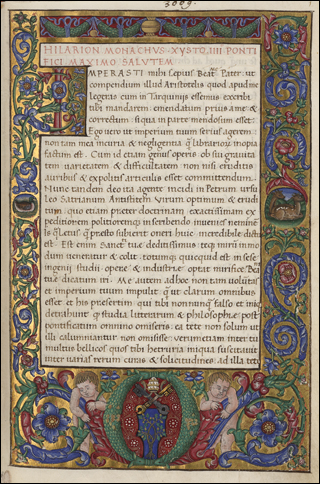 3089.
HILARION MONACHVS XYSTO IIII PONTI
FICI MAXIMO SALVTEM
IMPERASTI mihi sepius Beat. Pater: ut
compendium illud Aristotelis quod apud me
legeras cum in Tarquinijs essemus excerbi
tibi mandarem: emendatum prius a me: &
correctum: siqua in parte mendosum esset.
Ego uero ut imperium tuum serius agerem:
non tam mea incuria & negligentia q̃ librarior inopia
factum est. Cum id etiam genus operis ob sui grauita
tem uarietatem & difficultatem non nisi eruditis
auribus & expolitis articulis esset committendum.
Nunc tandem deo ita agente incidi in Petrum ursu
leo Satrianum Antistitem uirum optimum & erudi
tum: quo etiam preter doctrinam exactissimam ex
peditiorem politioremq; in scribendo inuenies nemine
Is q̃ letus q̃ presto subierit oneri huic incredibile dictu
est. Est enim Sanct. tue deditissimus: teq; mirũ immo
dum ueneratur & colit: totumq; quicquid est in se se
ingenij studij opere & industrie optat mirifice Bea
tue dicatum iri. Me autem ad hoc non tam uolunt
et imperium tuum impulit q̃ ut clarum omnibus
esset et his presertim qui tibi nonnunq̃ falso et iniq
detrahunt q̃ studia litterarum & philosophie post
pontificatum omnino omiseris: ea tete non solum ut
illi calumniantur non omisisse: uerum etiam inter tu
multus bellicos quos tibi hetruria iniqua suscitauit
inter uarias rerum curas & solicitudines: ad illa tete